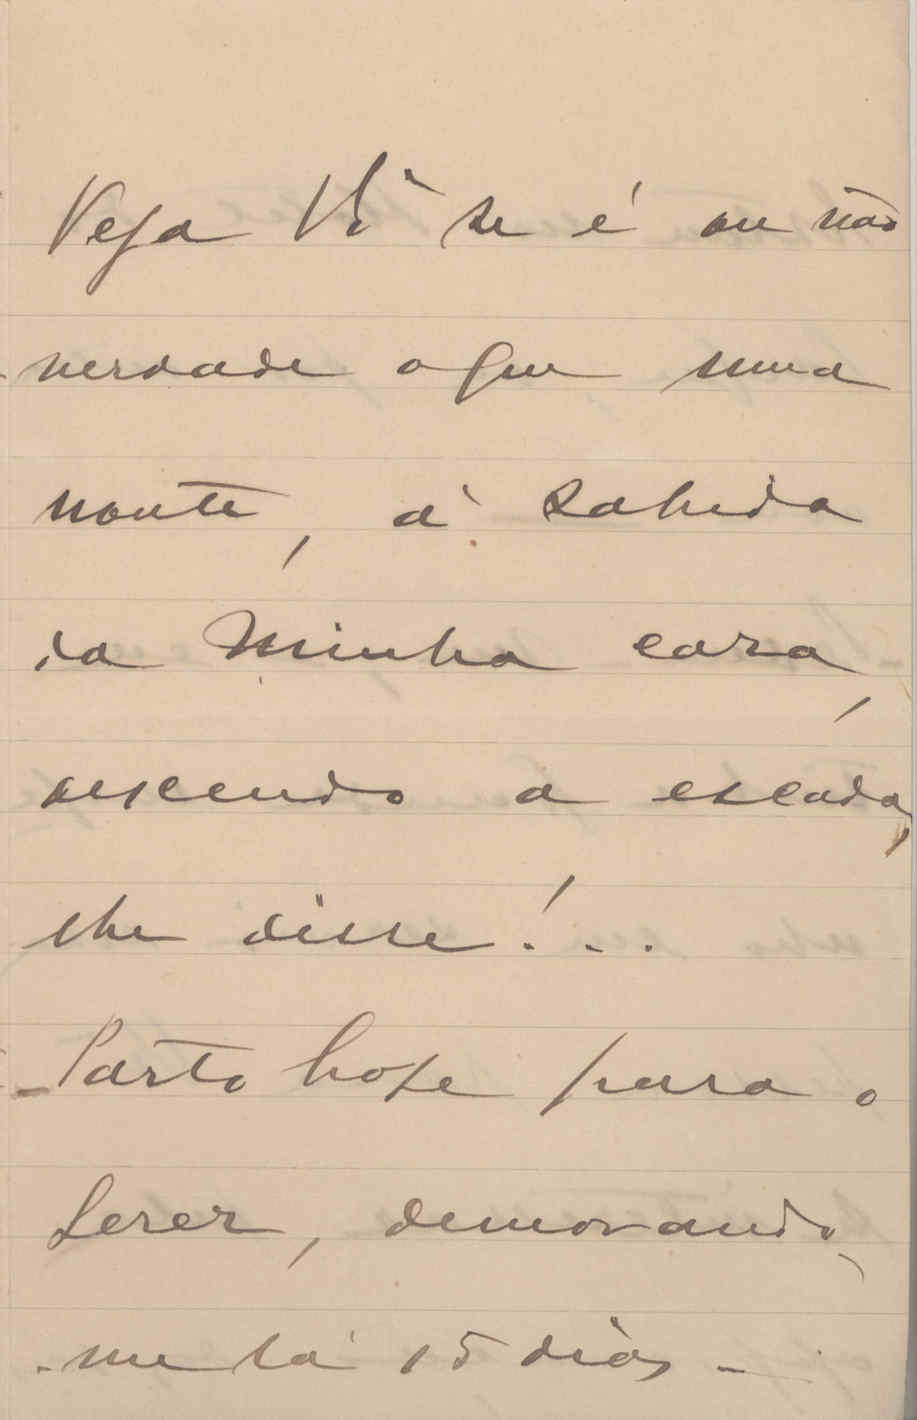 Veja Vª se é ou não
verdade o que numa
noute, á sahida
da minha casa,
descendo a escada,
lhe disse!...
- Parto hoje para o
Gerez, demorando
-me lá 15 dias -